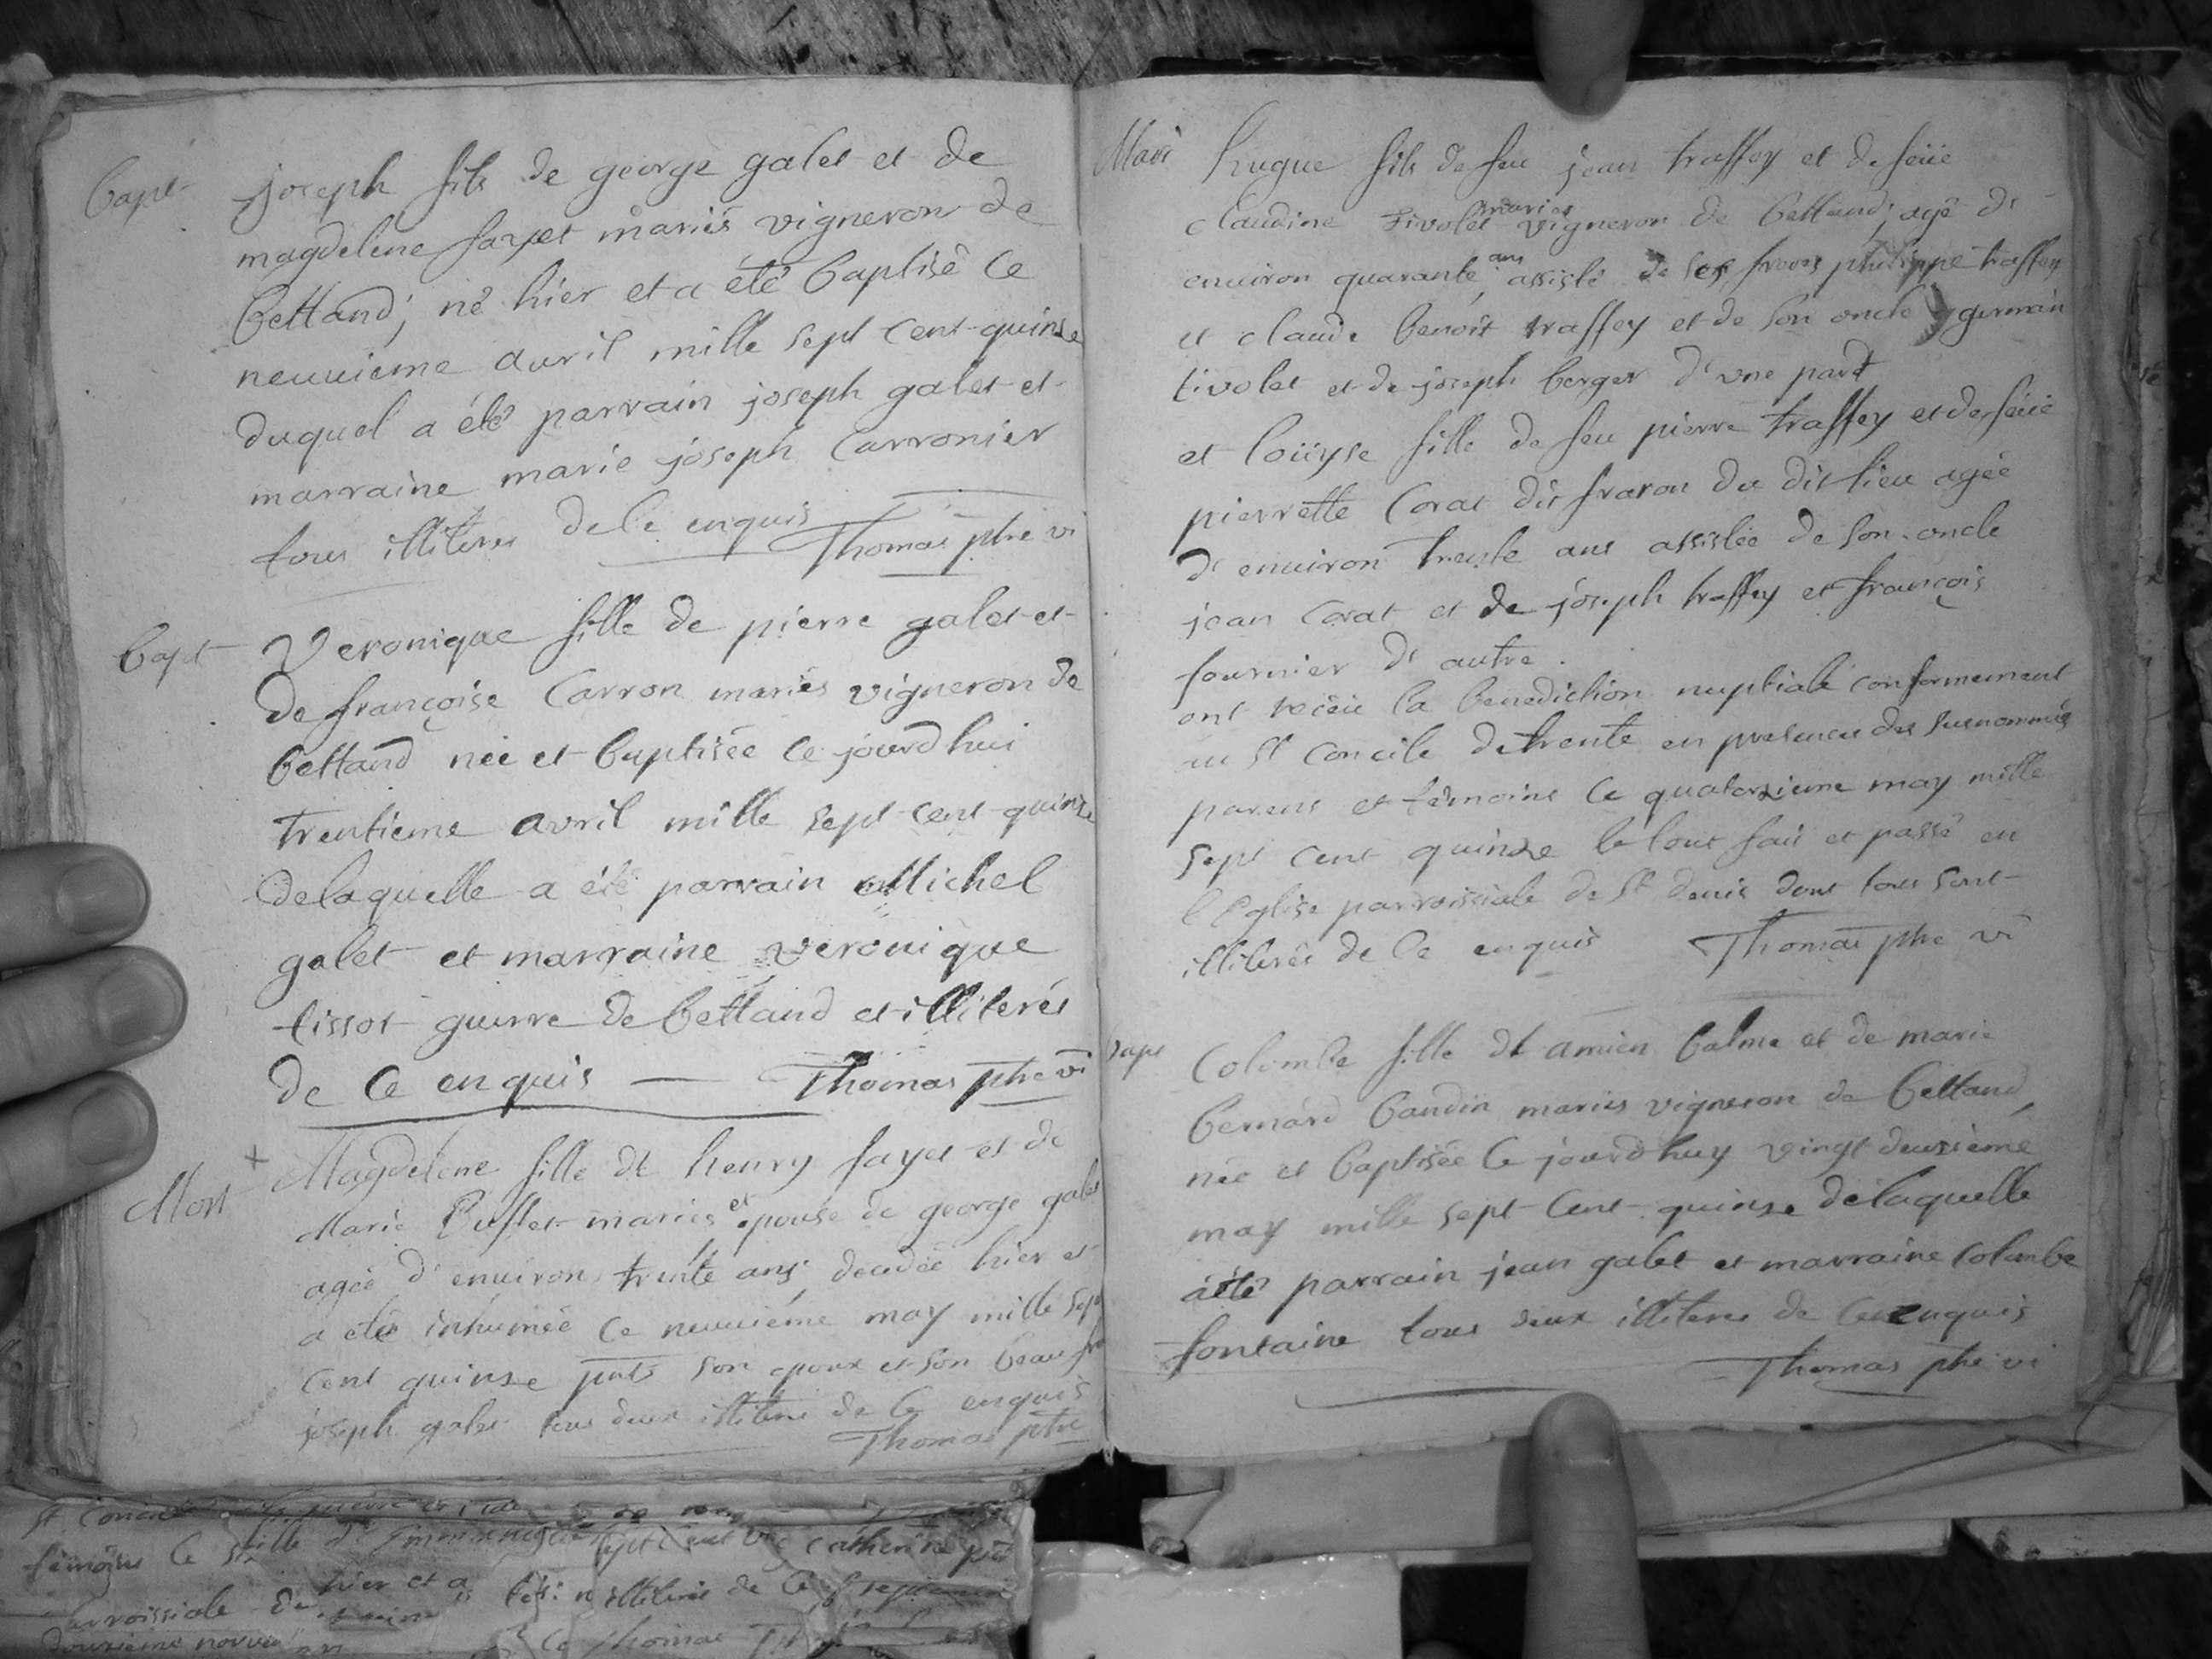 Bapt
joseph fils de george galet et de
magdelene fayet mariés vigneron de
bettand; né hier et a été baptisé ce
neuuieme auril mille sept cent quinse
duquel a été parrain joseph galet et
marraine marie joseph Carronier
tous illiteres de ce enquis
Thomas ptre vi
Bapt
Veronique fille de pierre galet et
de françoise Carron mariés vigneron de
bettand née et baptisée ce jourdhui
trentieme avril mille sept cent quinse
delaquelle a été parrain Michel
galet et marraine veronique
tissot guerre de bettand et illiterés
de ce enquis Thomas ptre vi
Mort
+ Magdelene fille de henry fayet et de
Marie Buffet mariés et epouse de george galet
agée d'enuiron trente ans, decedée hier et
a eté inhumée ce neuuiéme may mille sept
cent quinse pnts son epoux et son beau fre
joseph galet tous deux illiteres de ce enquis
Thomas ptre
Mari
hugue fils de feu jean traffey et de feüe
claudine tivolet mariés vigneron de bettand; agé d'
enuiron quarante ans, assisté de ses freres philippe traffey
et claude benoit traffey et de son oncle germain
tivolet et de joseph berger d'vne part
et loüyse fille de feu pierre traffey et de feüe
pierrette Corat dit fraron du dit lieu agée
d'enuiron trente ans assistée de son oncle
jean Corat et de joseph traffey et françois
fournier d'autre.
ont receu la benediction nuptiale conformement
au st concile de trente en presence des susnommés
parens et témoins ce quatorzieme may mille
sept cent quinse le tout fait et passé en
l'Eglise parroissiale de st denis dont tous sont
illiterés de ce enquis Thomas ptre vi
Bapt
Colombe fille de amien balme et de marie
bernard baudin mariés vigneron de bettand,
née et baptisée ce jourd'huy vingt deuxiéme
may mille sept cent quinse delaquelle
a été parrain jean galet et marraine colombe
fontaine tous deux illiteres de ce enquis
Thomas ptre vi
st Concile
témoins ce
hier et a
illiteres de ce
parroissiale de
ce Thomas